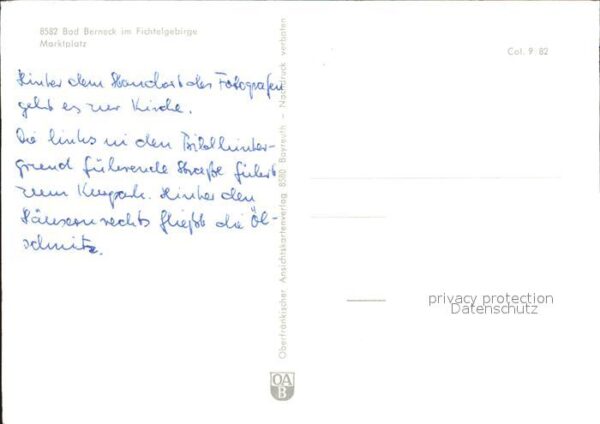 8582 Bad Berneck im Fichtelgebirge
Marktplatz
Col. 9 82
Hinter dem Standort des Fotografen
geht es zur Kirche.
Die links in den Bildhinter-
grund führende Straße führt
zum Kurpark. Hinter den
Häusern rechts fließt die Öl-
schnitz.
Oberfränkischer Ansichtskartenverlag 8580 Bayreuth – Nachdruck verboten
privacy protection
Datenschutz
OA
B